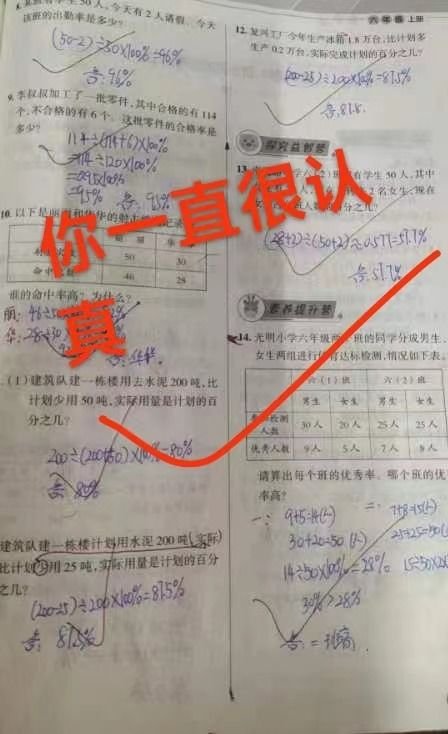 六年级 上册
8. 班有学生50人,今天有2人请假,今天
该班的出勤率是多少?
(50-2)÷50×100%=96%
答:96%
9. 李叔叔加工了一批零件,其中合格的有114
个,不合格的有6个,这批零件的合格率是
多少?
114÷(114+6)×100%
=114÷120×100%
=0.95×100%
=95% 答:95%
10. 以下是
50 30
46 28
谁的命中率高?为什么?
(1)建筑队建一栋楼用去水泥200吨,比
计划少用50吨,实际用量是计划的百
分之几?
200÷(200+50)×100%=80%
答:80%
建筑队建一栋楼计划用水泥200吨,实际
比计划少用25吨,实际用量是计划的百
分之几?
(200-25)÷200×100%=87.5%
答:87.5%
12. 复兴工厂今年生产冰箱1.8万台,比计划多
生产0.2万台,实际完成计划的百分之几?
(200-25)÷200×100%=87.5%
答:87.5.
探究益智营
13.
(28+2)÷(50+2)≈0.577=57.7%
答:57.7%
素养提升营
14. 光明小学六年级两个班的同学分成男生、
女生两组进行体育达标检测,情况如下表。
六(1)班 六(2)班
男生 女生 男生 女生
参加检测人数 30人 20人 25人 25人
优秀人数 9人 5人 7人 8人
请算出每个班的优秀率。哪个班的优
率高?
14÷50×100%=28%
30%>28%
你一直很认
真